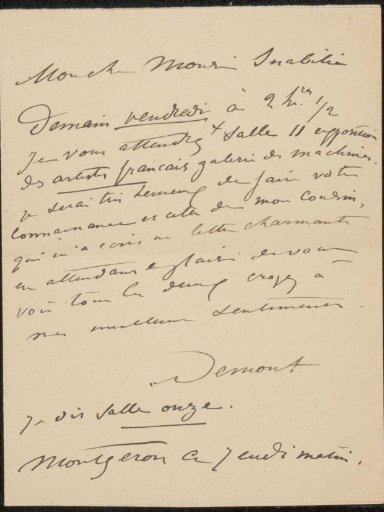 Mon cher Monsieur
Demain vendredi à 2 hres 1/2
je vous attendrez salle 11 exposition
des artistes français galerie des machines.
je serai très heureux de faire votre
connaissance et celle de mon cousin
qui m'a écrit une lettre charmante
en attendant le plaisir de vous
voir tous les deux croyez à
mes meilleurs sentiments.
Demont
Je dis salle onze.
Montgeron ce Jeudi matin.